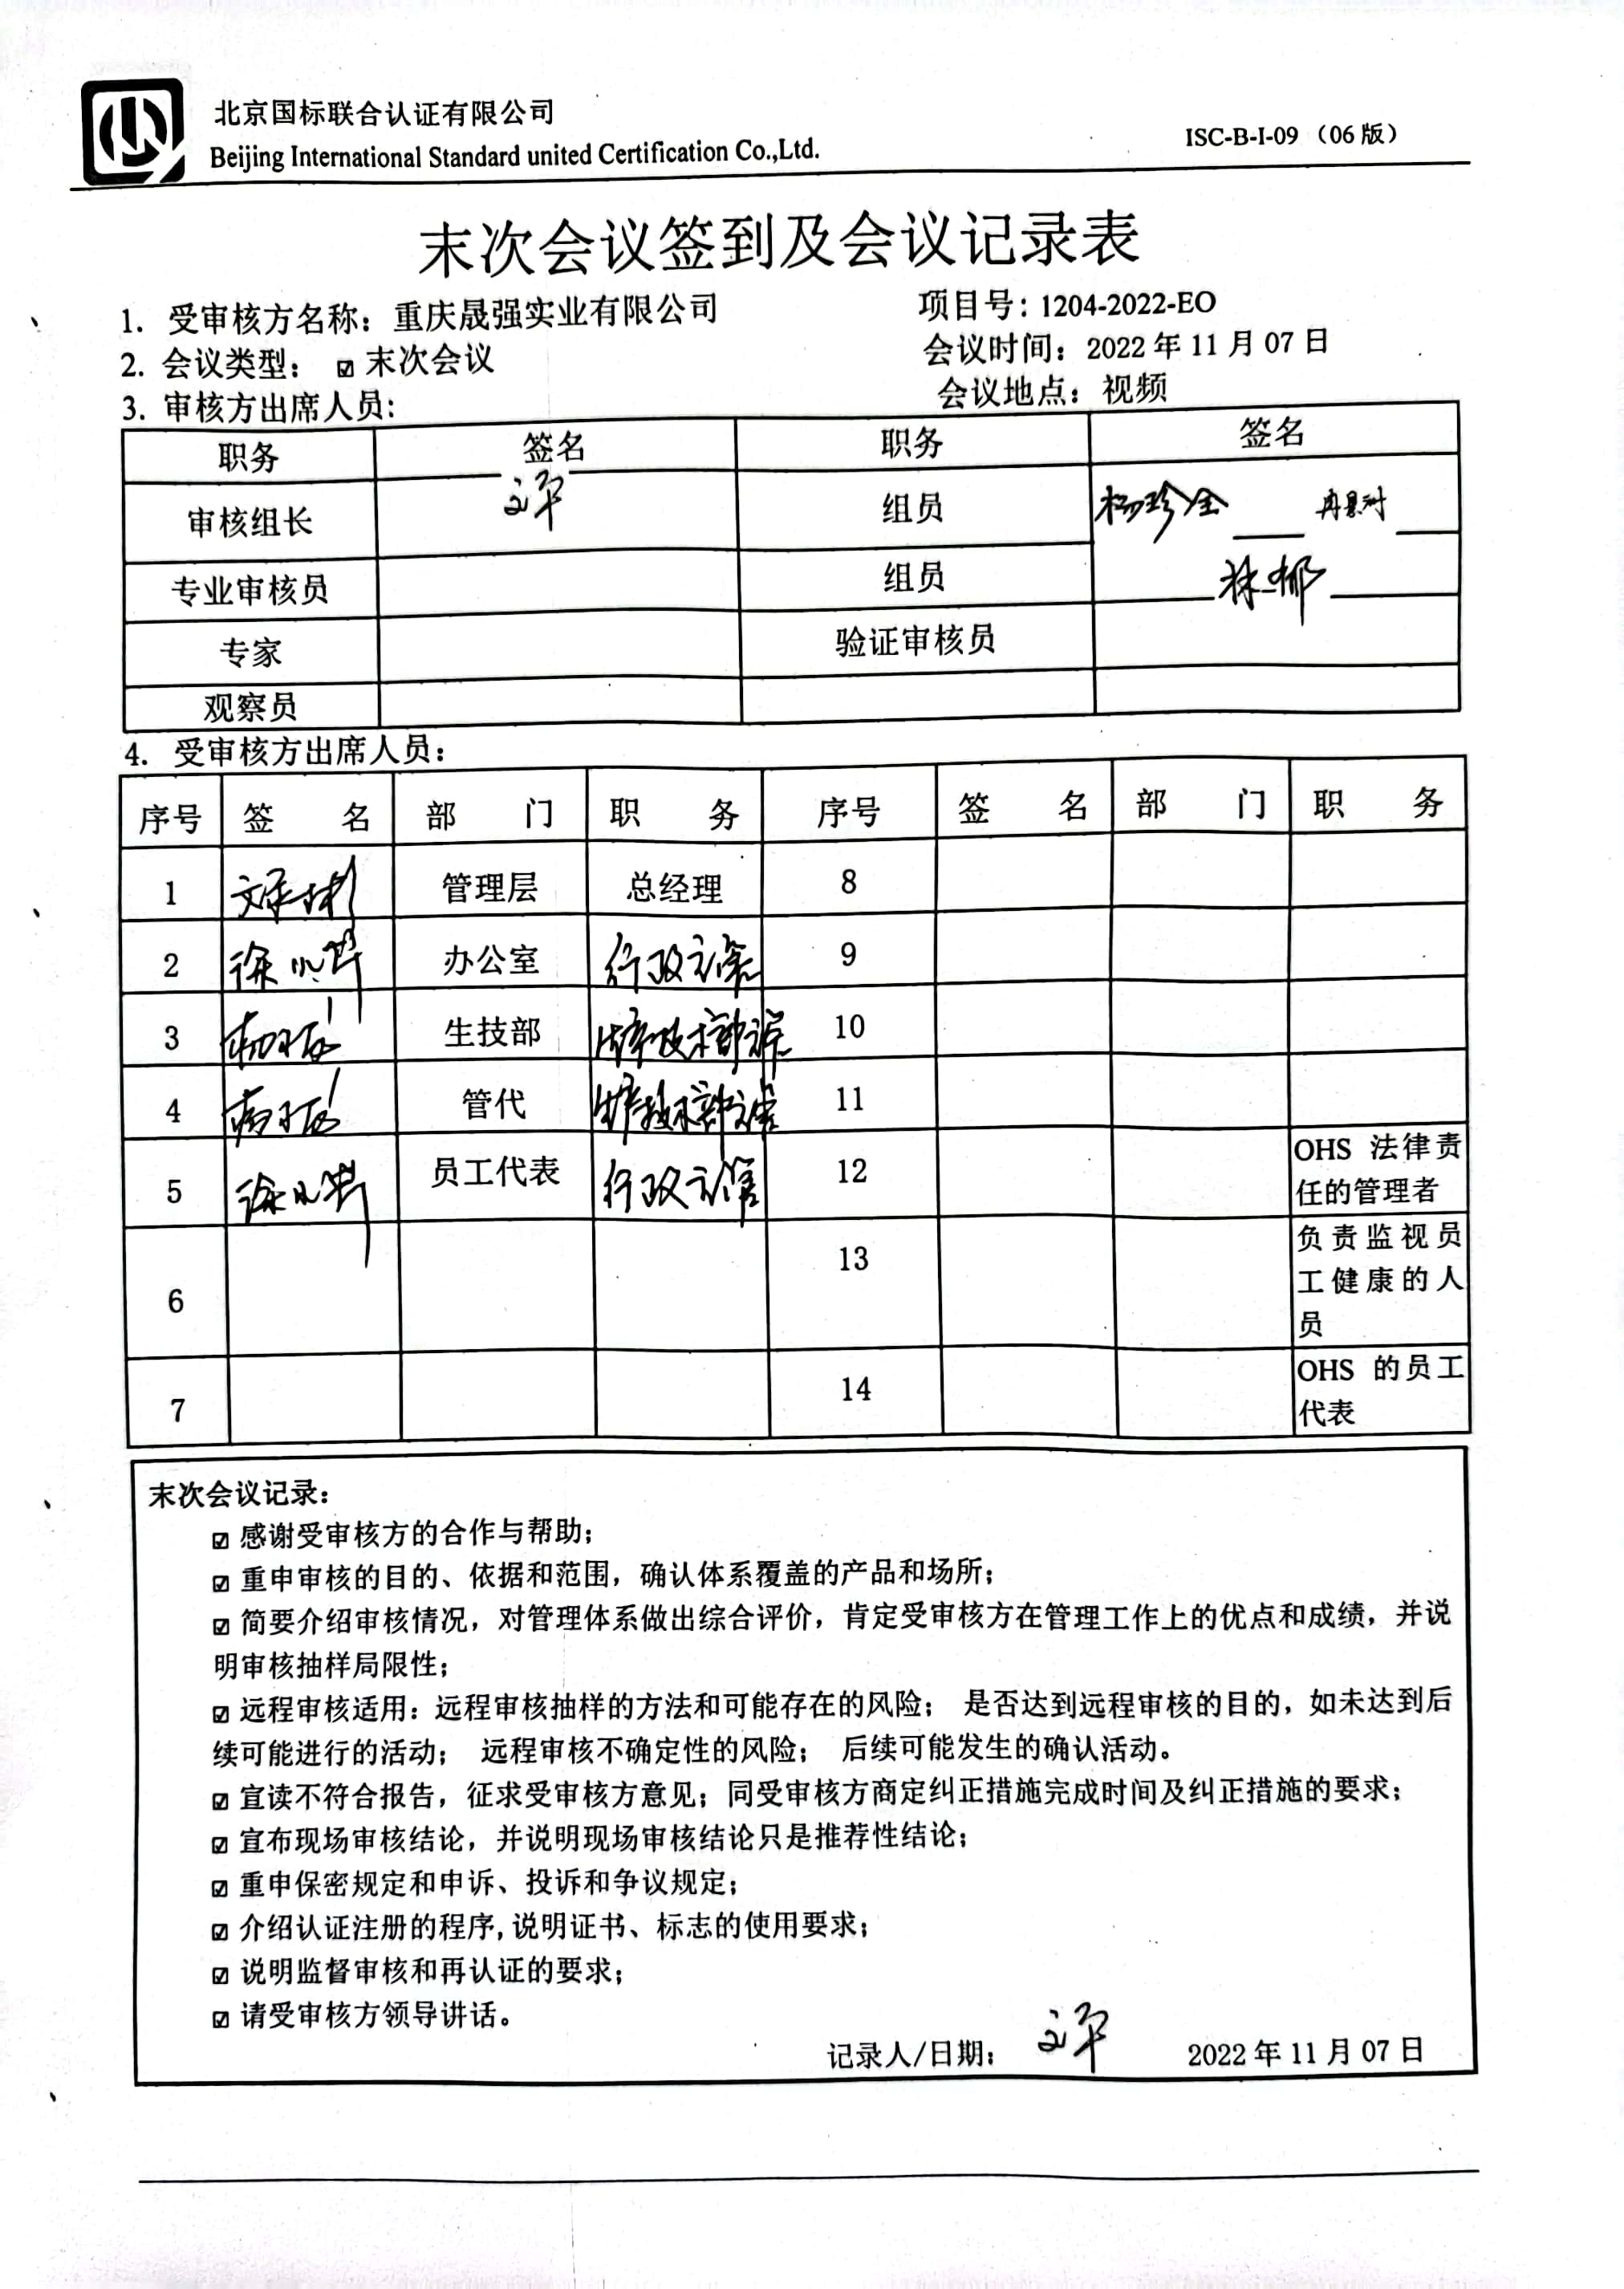 北京国标联合认证有限公司
Beijing International Standard united Certification Co.,Ltd.
ISC-B-I-09（06版）
末次会议签到及会议记录表
1. 受审核方名称：重庆晟强实业有限公司 项目号：1204-2022-EO
2. 会议类型： ☑ 末次会议 会议时间：2022 年 11 月 07 日
3. 审核方出席人员： 会议地点：视频
职务 签名 职务 签名
审核组长 文平 组员 杨珍全
专业审核员 组员 林郁
专家 验证审核员
观察员
4. 受审核方出席人员：
序号 签 名 部 门 职 务 序号 签 名 部 门 职 务
1 管理层 总经理 8
2 办公室 行政主管 9
3 生技部 10
4 管代 11
5 员工代表 行政主管 12 OHS 法律责
任的管理者
6 13 负责监视员
工健康的人
员
7 14 OHS 的员工
代表
末次会议记录：
☑ 感谢受审核方的合作与帮助；
☑ 重申审核的目的、依据和范围，确认体系覆盖的产品和场所；
☑ 简要介绍审核情况，对管理体系做出综合评价，肯定受审核方在管理工作上的优点和成绩，并说
明审核抽样局限性；
☑ 远程审核适用：远程审核抽样的方法和可能存在的风险； 是否达到远程审核的目的，如未达到后
续可能进行的活动； 远程审核不确定性的风险； 后续可能发生的确认活动。
☑ 宣读不符合报告，征求受审核方意见；同受审核方商定纠正措施完成时间及纠正措施的要求；
☑ 宣布现场审核结论，并说明现场审核结论只是推荐性结论；
☑ 重申保密规定和申诉、投诉和争议规定；
☑ 介绍认证注册的程序,说明证书、标志的使用要求；
☑ 说明监督审核和再认证的要求；
☑ 请受审核方领导讲话。
记录人/日期： 文平 2022 年 11 月 07 日